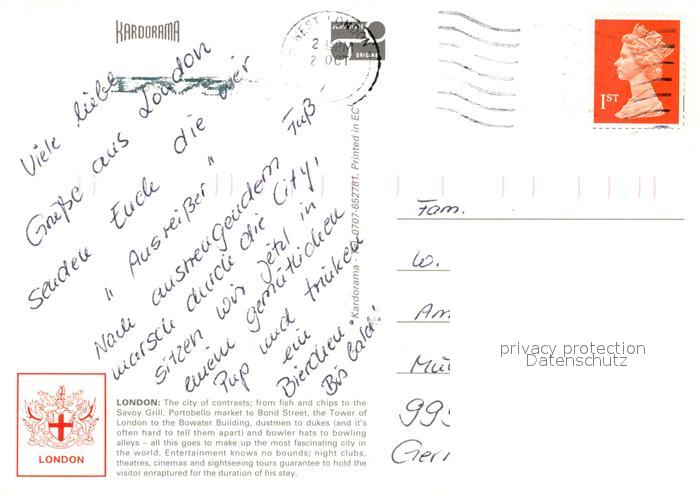 KARDORAMA
WEST LONDON
2 OCT
ORIGINAL
1ST
Viele liebe
Grüße aus London
senden Euch die vier
"Ausreißer"
Nach anstrengendem Fuß-
marsch durch die City,
sitzen wir jetzt in
einem gemütlichen
Pup und trinken
ein
Bierchen.
Bis bald!
Kardorama - Tel. 0707-652781. Printed in EC
Fam.
W.
Am
Mü
99
Ger
privacy protection
Datenschutz
LONDON: The city of contrasts; from fish and chips to the
Savoy Grill, Portobello market to Bond Street, the Tower of
London to the Bowater Building, dustmen to dukes (and it's
often hard to tell them apart) and bowler hats to bowling
alleys – all this goes to make up the most fascinating city in
the world. Entertainment knows no bounds; night clubs,
theatres, cinemas and sightseeing tours guarantee to hold the
visitor enraptured for the duration of his stay.
LONDON